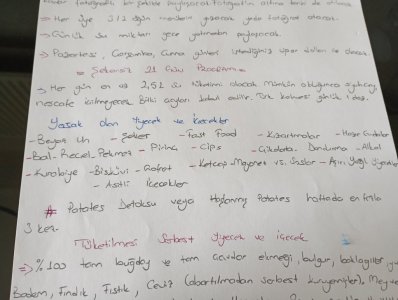 fotoğraflı bir şekilde paylaşacak fotoğrafın altına
=> Her üye 3/2 öğün menüsünü yazacak yada fotoğraf atacak.
=> Günlük su miktarı gece yatmadan paylaşacak.
=> Pazartesi, Çarşamba, Cuma günleri istediğiniz spor dalları ile olacak
= Şekersiz 21 Gün Programı =
=> Her gün en az 2,5 L su tüketimi olacak Mümkün olduğunca
nescafe içilmeyecek Bitki çayları kabul edilir. Türk kahvesi günlük 1 des.
Yasak olan Yiyecek ve İçecekler
- Beyaz Un - Şeker - Fast Food - Kızartmalar - Hazır Gıdalar
- Bal - Reçel - Pekmez - Pirinç - Cips - Çikolata - Dondurma - Alkol
- Kurabiye - Bisküvi - Gofret - Ketçap - Mayonez vs. Soslar - Aşırı Yağlı Yiyecekler
- Asitli İçecekler
* Patates Detoksu veya Haşlanmış Patates haftada en fazla
3 kez.
Tüketilmesi Serbest Yiyecek ve içecek
=> % 100 tam buğday ve tam çavdar ekmeği, bulgur, baklagiller
Badem, Fındık, Fıstık, Ceviz (abartılmadan serbest kuruyemişler),